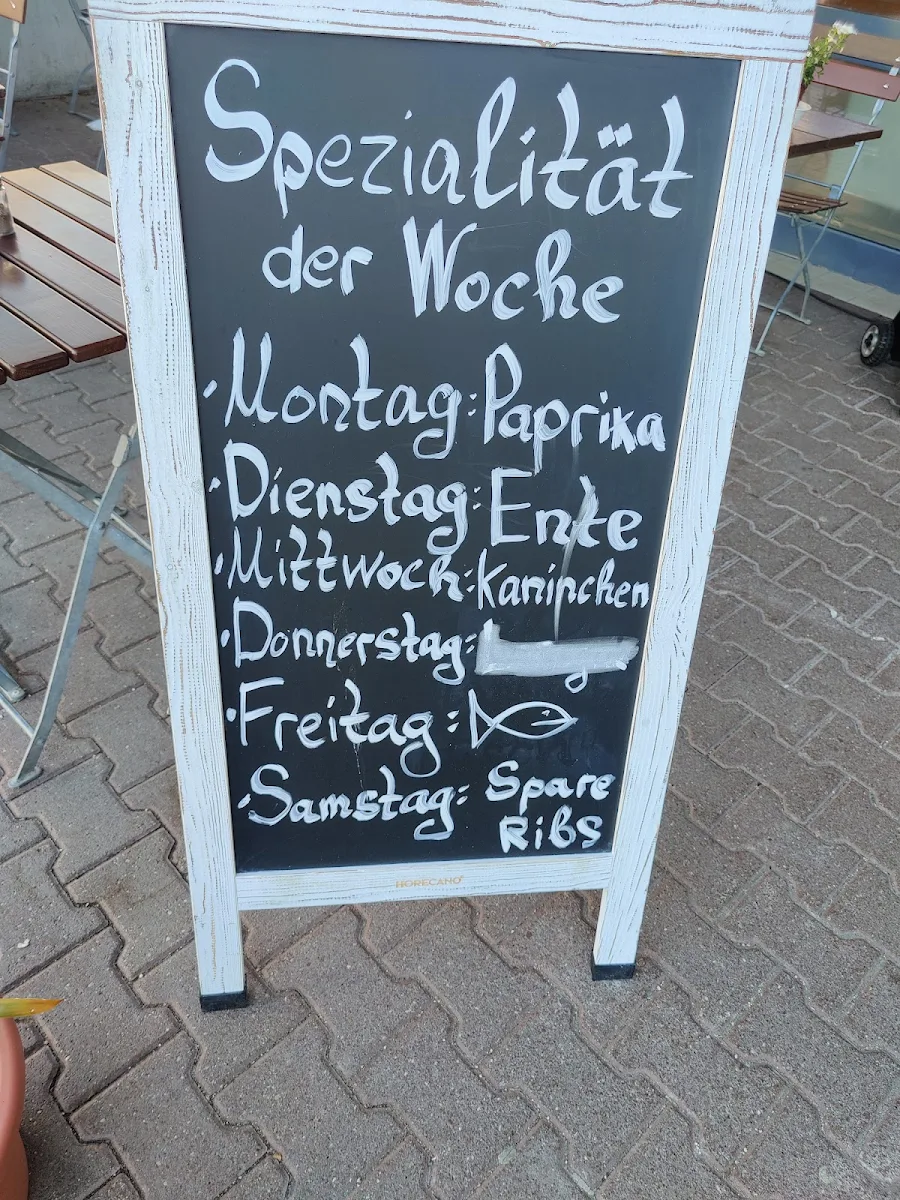 Spezialität
der Woche
· Montag: Paprika
· Dienstag: Ente
· Mittwoch: Kaninchen
· Donnerstag:
· Freitag:
· Samstag: Spare
Ribs
HORECANO